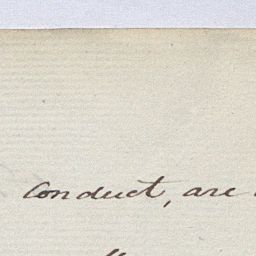 Conduct, are